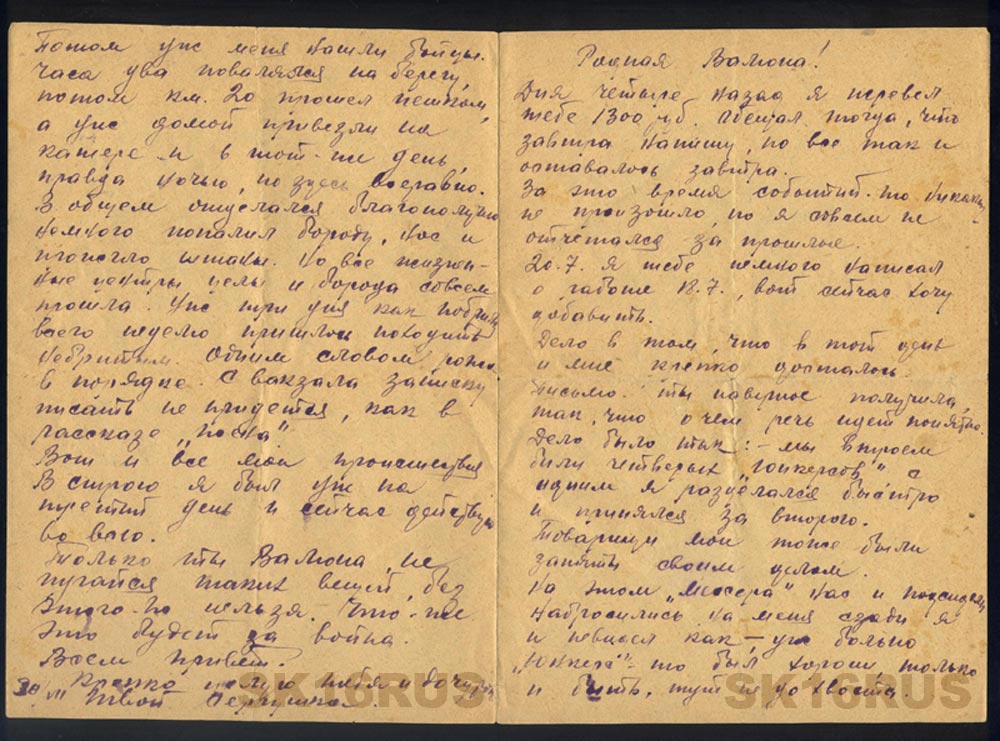 Родная Валюша!
Дня четыре назад я перевел
тебе 1300 руб. Обещал тогда, что
завтра напишу, но все так и
оставалось завтра.
За это время событий-то никаких
не произошло, но я совсем не
отчётался за прошлые.
20.7. я тебе немного написал
о работе 18.7., вот сейчас хочу
добавить.
Дело в том, что в тот день
и мне крепко досталось.
Письмо ты наверное получила,
так, что о чем речь идет понятно.
Дело было так: — мы втроем
били четверых "Юнкерсов" с
одним я разделался быстро
и принялся за второго.
Товарищи мои тоже были
заняты своим делом.
На этом "Мессера" нас и подсидели
набросились на меня сзади я
и невидел как — уж больно
"Юнкерс"-то был хорош только
и бить, тут не до хвоста.
Потом уже меня нашли бойцы.
Часа два повалялся на берегу,
потом км. 20 прошел пешком,
а уже домой привезли на
катере и в тот-же день,
правда ночью, но здесь всеравно.
В общем отделался благополучно
немного попалил бороду, нос и
прожгло штаны. Но все жизнен-
ные центры целы и борода совсем
прошла. Уже три дня как побрился
всего неделю пришлось походить
небритым. Одним словом рожа
в порядке. С вакзала записку
писать не придется, как в
рассказе
Вот и все мои происшествия
В строю я был уже на
третий день и сейчас действую
во всю.
Только ты Валюша не
пугайся таких вещей, без
этого-то нельзя. Что-же
это будет за война.
Всем привет.
Крепко целую тебя и дочурку
Твой Сергушка.
SK16RUS SK16RUS